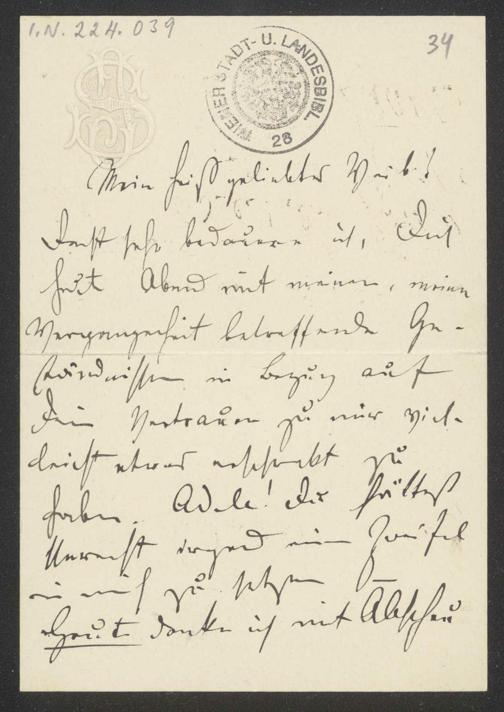 I.N. 224.039
34
WIENER STADT- U. LANDESBIBL.
28
Mein heißgeliebtes Weib!
Recht sehr bedauere ich, Dich
heut Abend mit meinen, meine
Vergangenheit betreffende Ge-
ständnissen in Bezug auf
Dein Vertrauen zu mir viel-
leicht etwas erschreckt zu
haben. Adele! Du hättest
Unrecht irgend einen Zweifel
in mich zu setzen
Heut denke ich mit Abscheu